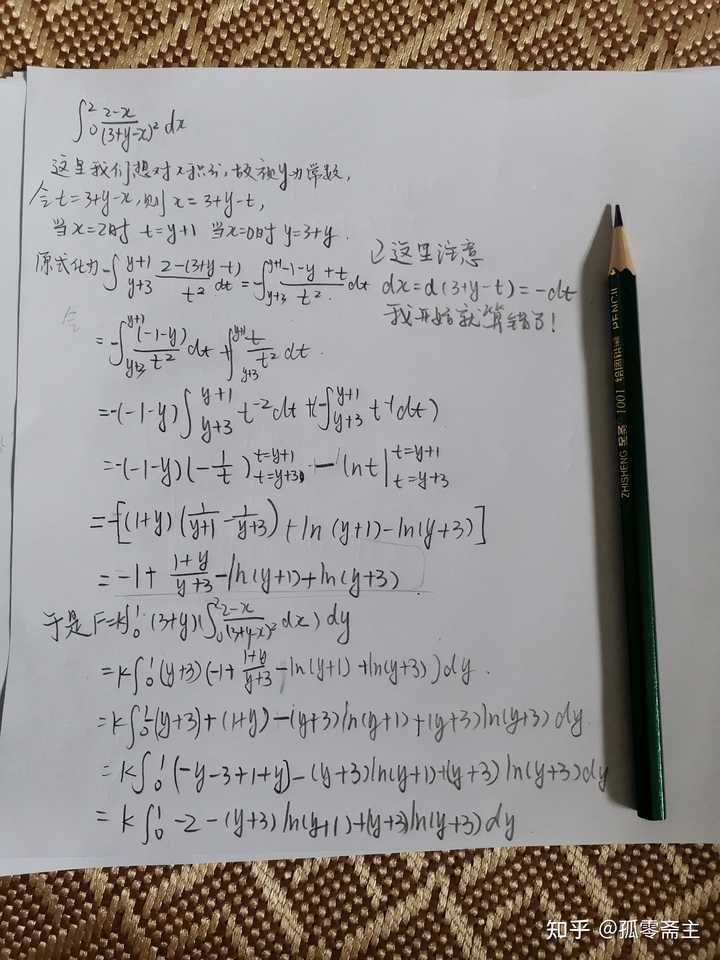 ∫₀² (2-x)/(3+y-x)² dx
这里我们想对x积分,故视y为常数,
令t=3+y-x,则x=3+y-t,
当x=2时 t=y+1 当x=0时 y=3+y.
原式化为-∫_{y+3}^{y+1} (2-(3+y-t))/t² dt = -∫_{y+3}^{y+1} (-1-y+t)/t² dt
这里注意
dx=d(3+y-t)=-dt
我开始就算错了!
令
=-∫_{y+3}^{y+1} (-1-y)/t² dt + ∫_{y+3}^{y+1} t/t² dt.
=-(-1-y)∫_{y+3}^{y+1} t⁻²dt+(-∫_{y+3}^{y+1} t⁻¹dt)
=-(-1-y)(-1/t)|_{t=y+3}^{t=y+1} - lnt|_{t=y+3}^{t=y+1}
=-[(1+y)(1/(y+1) - 1/(y+3))+ln(y+1)-ln(y+3)]
=-1+(1+y)/(y+3)-ln(y+1)+ln(y+3)
于是F=k∫₀¹(3+y)(∫₀² (2-x)/(3+y-x)² dx)dy
=k∫₀¹(y+3)(-1+(1+y)/(y+3)-ln(y+1)+ln(y+3))dy.
=k∫₀¹-(y+3)+(1+y)-(y+3)ln(y+1)+(y+3)ln(y+3)dy.
=k∫₀¹(-y-3+1+y)-(y+3)ln(y+1)+(y+3)ln(y+3)dy
=k∫₀¹-2-(y+3)ln(y+1)+(y+3)ln(y+3)dy
ZHISHENG 知圣 1001 绘图铅笔 PENCIL
知乎 @孤零斋主